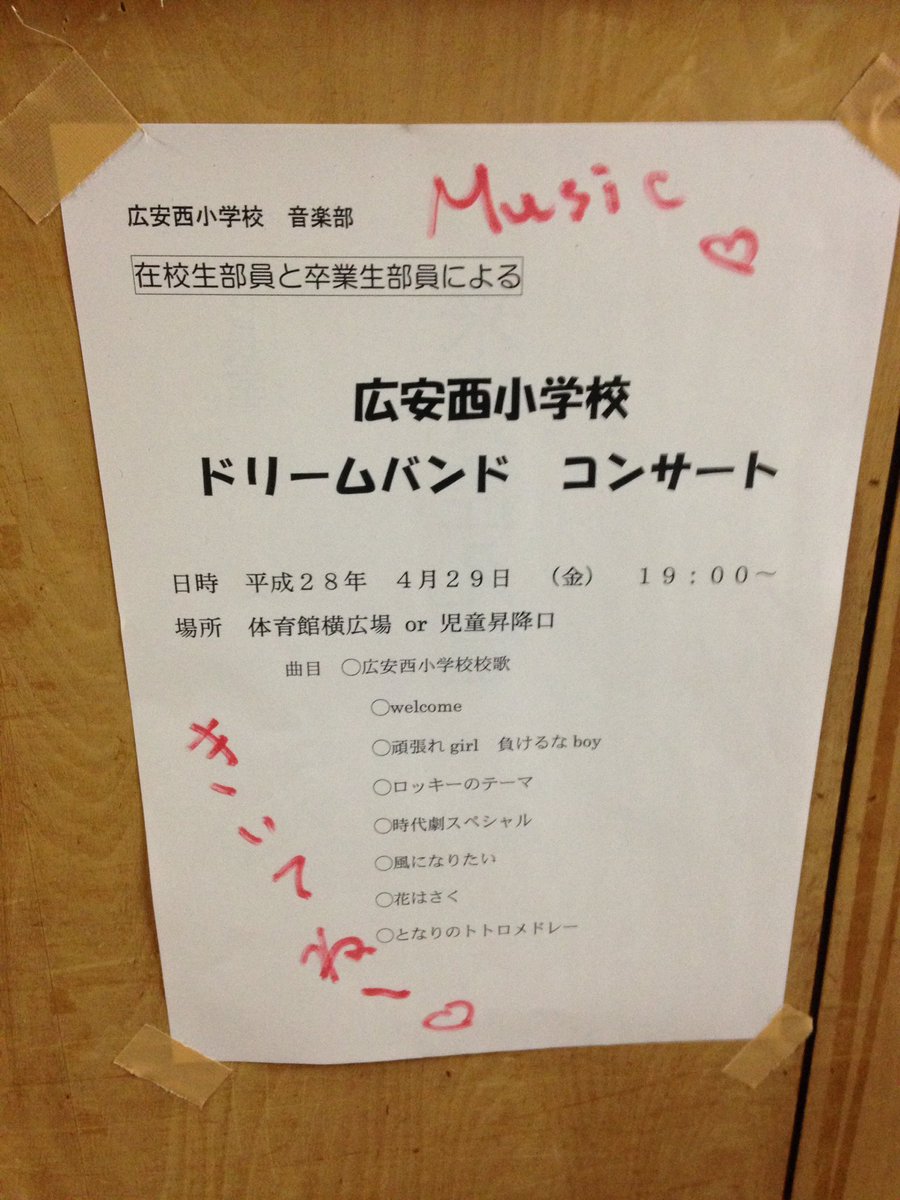 Music
広安西小学校　音楽部
在校生部員と卒業生部員による
広安西小学校
ドリームバンド　コンサート
日時　平成２８年　４月２９日　（金）　１９：００～
場所　体育館横広場 or 児童昇降口
曲目　○広安西小学校校歌
○welcome
○頑張れ girl　負けるな boy
○ロッキーのテーマ
○時代劇スペシャル
○風になりたい
○花はさく
○となりのトトロメドレー
きいてねー